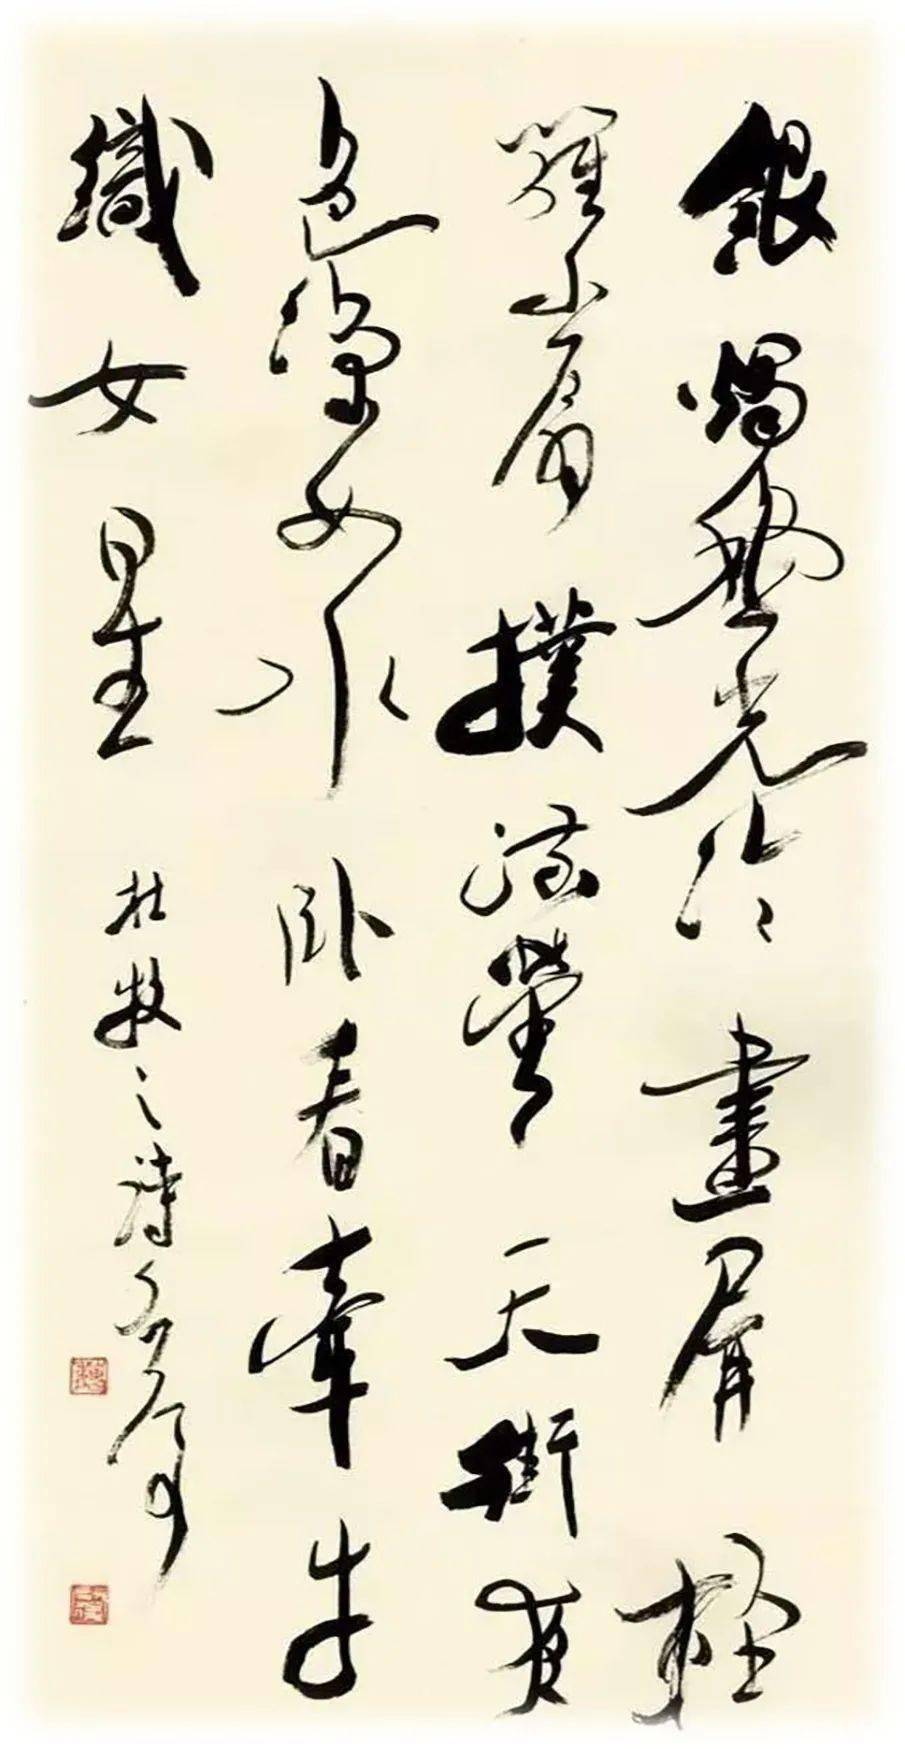 銀燭秋光冷畫屏輕
羅小扇撲流螢天街夜
色涼如水卧看牽牛
織女星 杜牧之詩